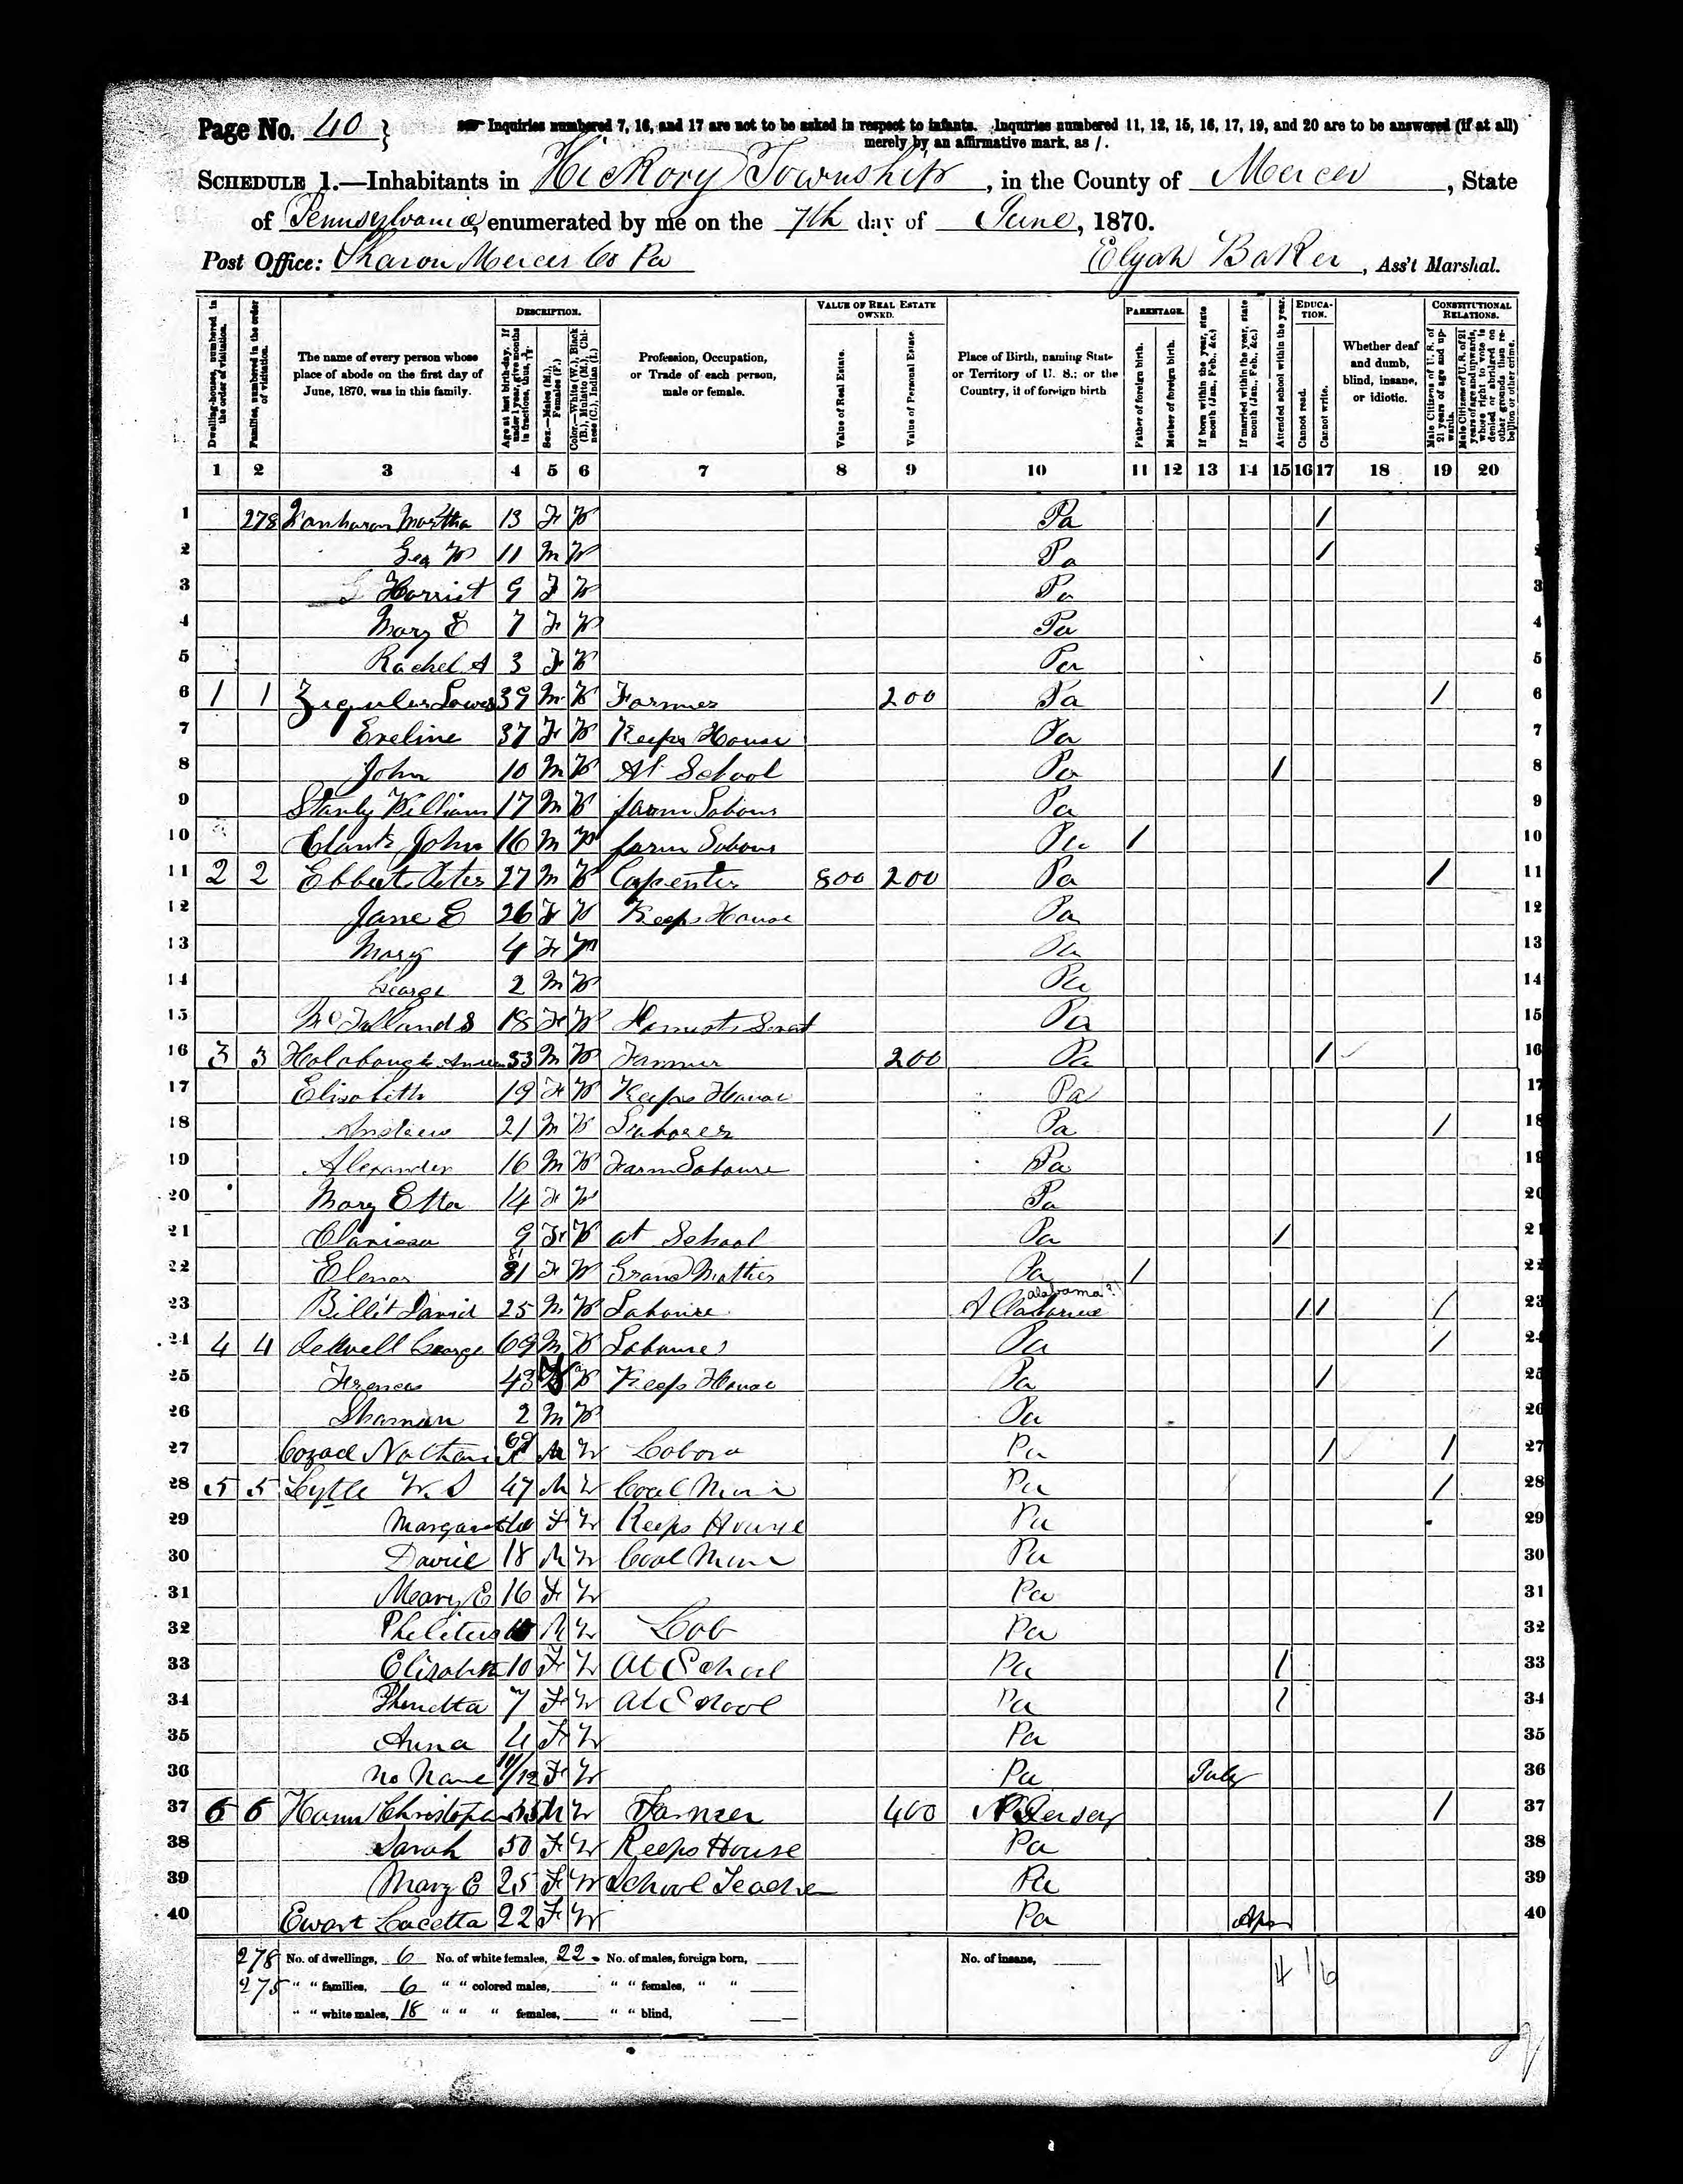 Page No. 40
Inquiries numbered 7, 16, and 17 are not to be asked in respect to infants. Inquiries numbered 11, 12, 15, 16, 17, 19, and 20 are to be answered (if at all)
merely by an affirmative mark, as /.
SCHEDULE 1.—Inhabitants in Hickory Township, in the County of Mercer, State
of Pennsylvania, enumerated by me on the 7th day of June, 1870.
Post Office: Sharon Mercer Co Pa Elijah Baker, Ass't Marshal.
DESCRIPTION. VALUE OF REAL ESTATE OWNED. PARENTAGE. EDUCATION. CONSTITUTIONAL RELATIONS.
Dwelling-houses, numbered in the order of visitation.
Families, numbered in the order of visitation.
The name of every person whose place of abode on the first day of June, 1870, was in this family.
Age at last birth-day. If under 1 year, give months in fractions, thus, 3/12.
Sex.—Males (M.), Females (F.)
Color.—White (W.), Black (B.), Mulatto (M.), Chinese (C.), Indian (I.)
Profession, Occupation, or Trade of each person, male or female.
Value of Real Estate.
Value of Personal Estate.
Place of Birth, naming State or Territory of U. S.; or the Country, if of foreign birth
Father of foreign birth.
Mother of foreign birth.
If born within the year, state month (Jan., Feb., &c.)
If married within the year, state month (Jan., Feb., &c.)
Attended school within the year.
Cannot read.
Cannot write.
Whether deaf and dumb, blind, insane, or idiotic.
Male Citizens of U. S. of 21 years of age and upwards.
Male Citizens of U. S. of 21 years of age and upwards, whose right to vote is denied or abridged on other grounds than rebellion or other crime.
1 2 3 4 5 6 7 8 9 10 11 12 13 14 15 16 17 18 19 20
1 278 Martha 13 F W Pa / 1
2 Geo W 11 M W Pa / 2
3 Harriet 9 F W Pa 3
4 Mary E 7 F W Pa 4
5 Rachel A 3 F W Pa 5
6 1 1 39 M W Farmer 200 Pa / 6
7 Eveline 37 F W Keeps House Pa 7
8 John 10 M W At School Pa / 8
9 Stanly William 17 M W farm Labour Pa 9
10 John 16 M W farm Labour Pa / 10
11 2 2 Peter 27 M W Carpenter 800 200 Pa / 11
12 Jane E 26 F W Keeps House Pa 12
13 Mary 4 F W Pa 13
14 George 2 M W Pa 14
15 S 18 F W Pa 15
16 3 3 53 M W Farmer 200 Pa / 16
17 Elisabeth 19 F W Keeps House Pa 17
18 Andrew 21 M W Laborer Pa / 18
19 Alexander 16 M W Farm Laboure Pa 19
20 Mary Etta 14 F W Pa 20
21 Clarissa 9 F W at School Pa / 21
22 Elenor 81 81 F W Grand Mother Pa / 22
23 Billit David 25 M W Laboure alabama? / / / 23
24 4 4 George 69 M W Labourer Pa / 24
25 Frances 43 F W Keeps House Pa / 25
26 Sharman 2 M W Pa 26
27 Cozad Nathan 69 M W Labora Pa / / 27
28 5 5 Lytle W. S 47 M W Coal Mine Pa / 28
29 Margaret 40 F W Keeps House Pa 29
30 David 18 M W Coal Mine Pa 30
31 Meary E 16 F W Pa 31
32 Philitus M W Lab Pa 32
33 Elisabeth 10 F W At School Pa / 33
34 7 F W At School Pa / 34
35 Anna 4 F W Pa 35
36 No Name 11/12 F W Pa July 36
37 6 6 Christopher 55 M W Farmer 400 N Jersey / 37
38 Sarah 50 F W Keeps House Pa 38
39 Mary E 25 F W School Teacher Pa 39
40 Ewart Lucetta 22 F W Pa Apr 40
278 No. of dwellings, 6 No. of white females, 22 No. of males, foreign born, No. of insane, 4 1 6
275 " " families, 6 " " colored males, " " females, " "
" " white males, 18 " " " females, " " blind,